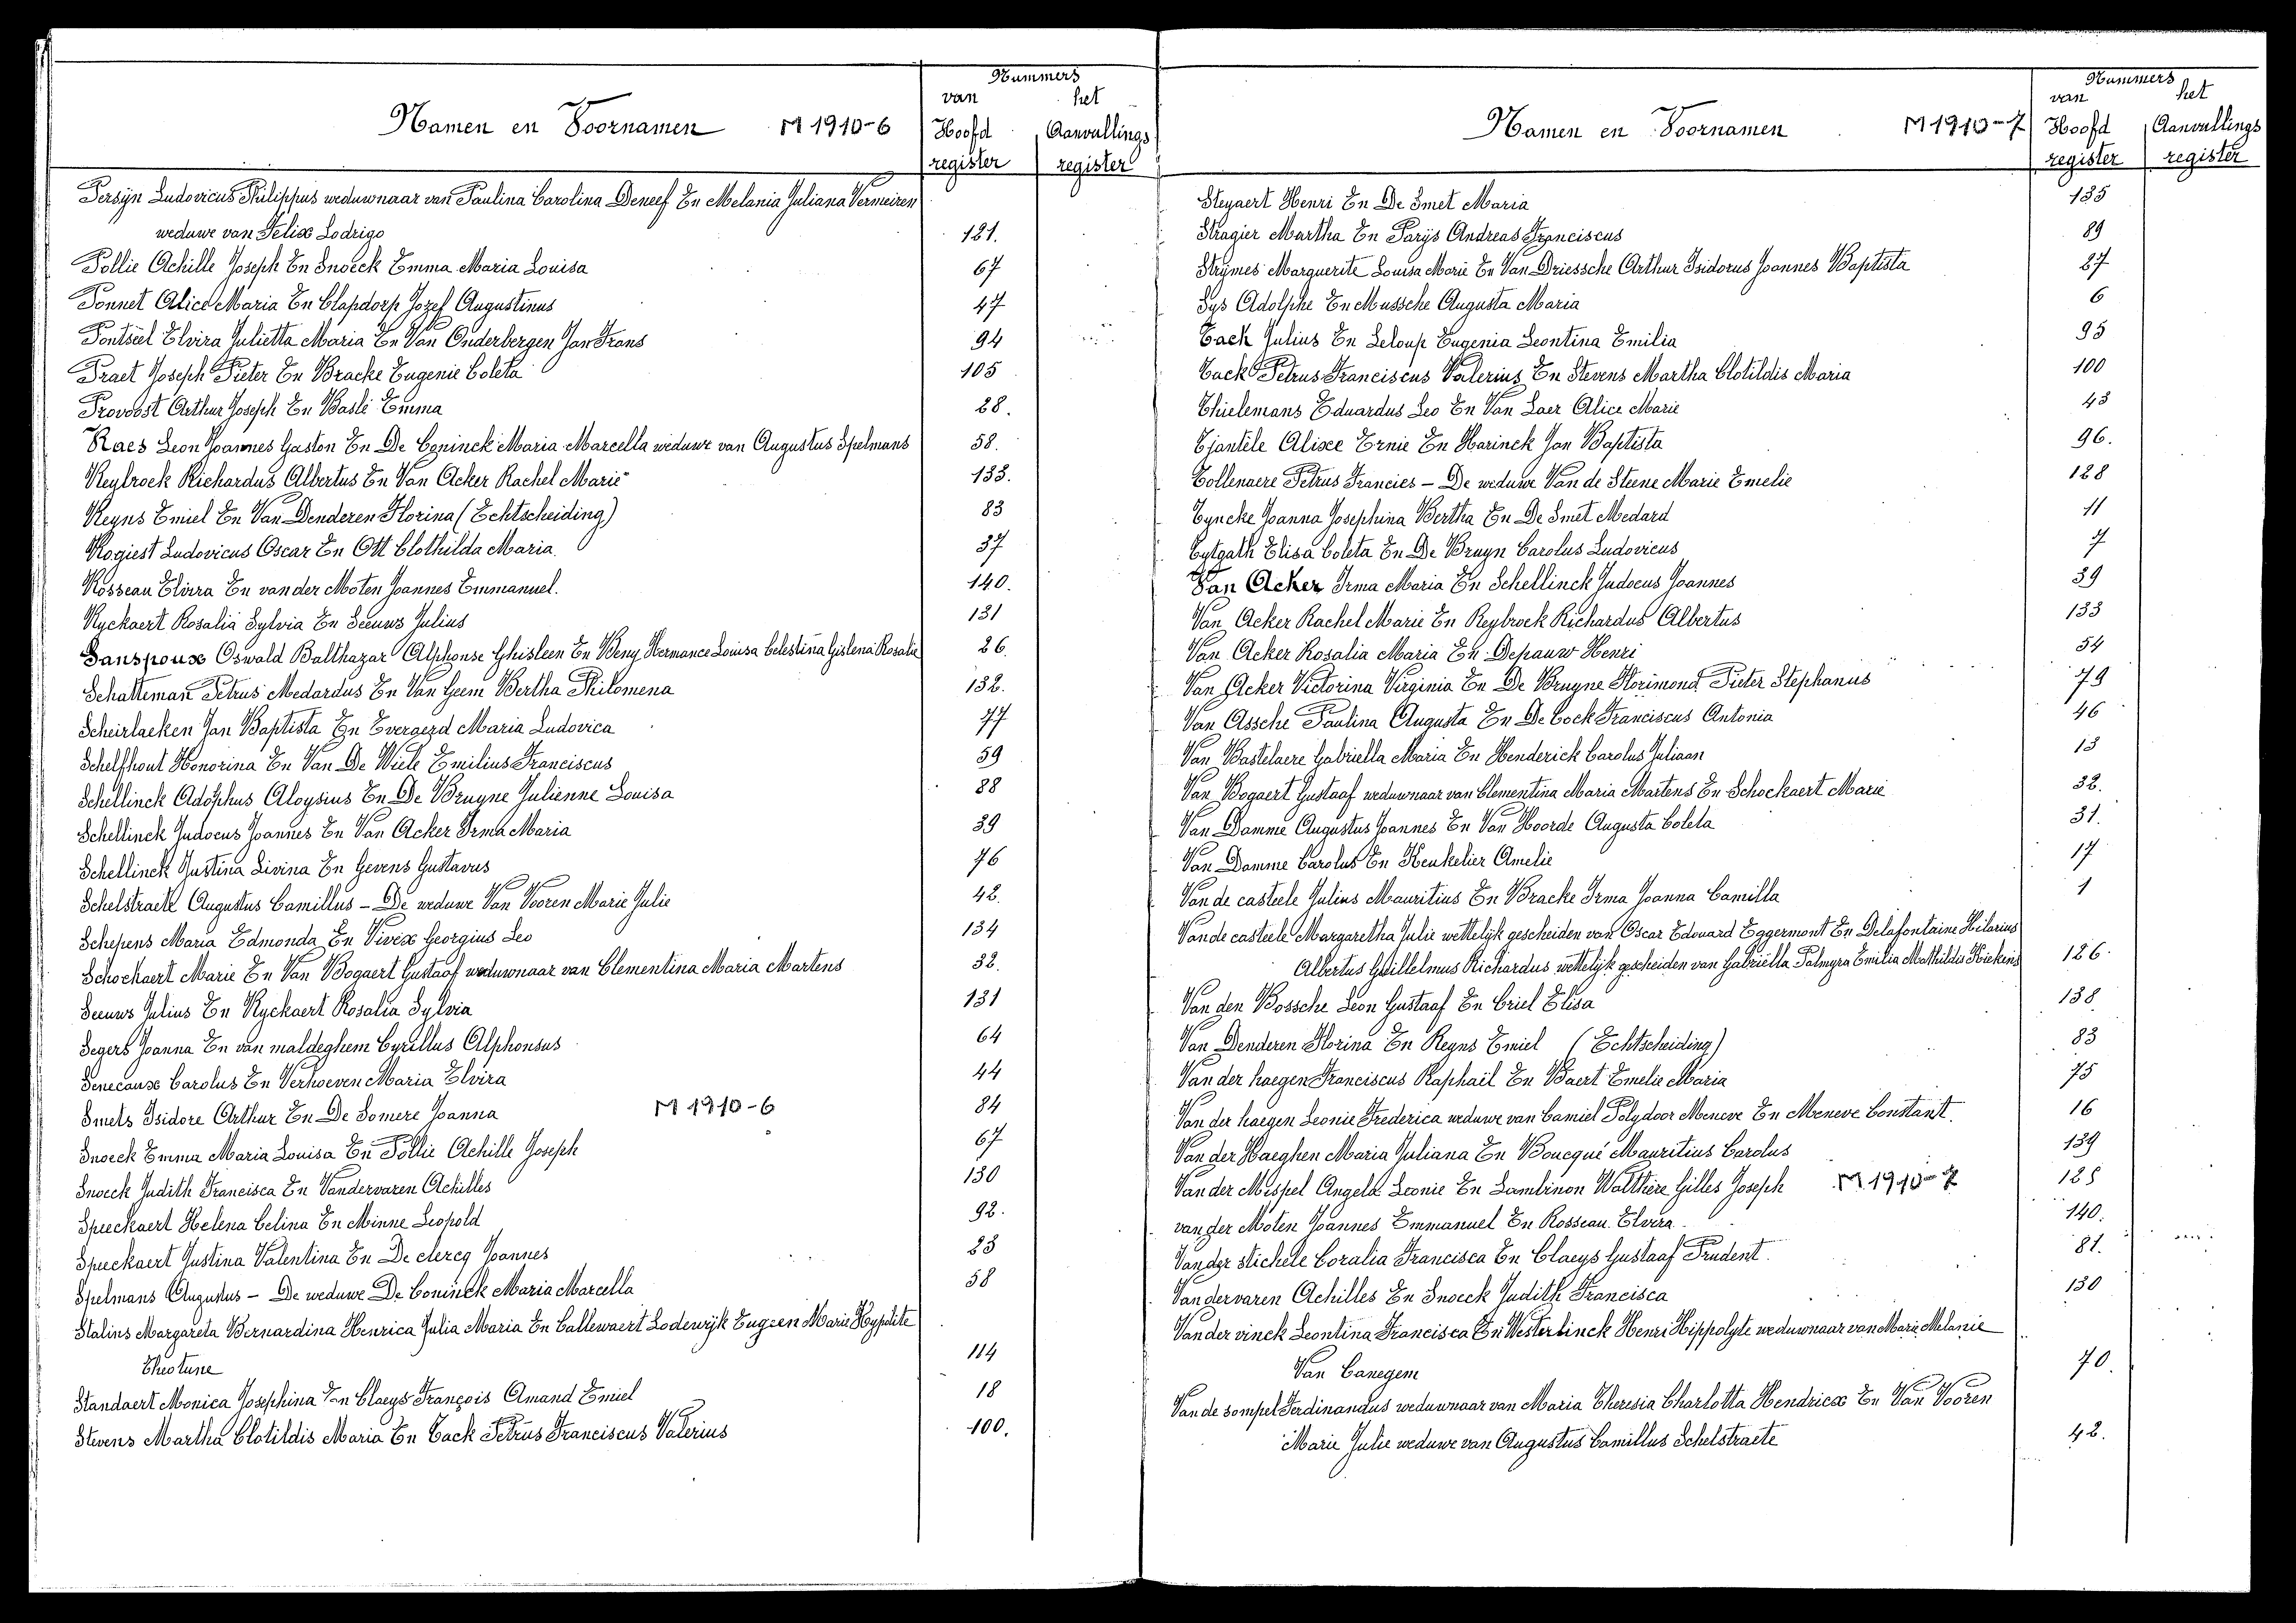 Nummers
van het
Namen en Voornamen M 1910-6 Hoofd Aanvullings
register register
Persijn Ludovicus Philippus weduwnaar van Paulina Carolina Deneef En Melania Juliana Vermeiren
weduwe van Felix Lodrigo 121.
Pollie Achille Joseph En Snoeck Emma Maria Louisa 67
Ponnet Alice Maria En Clapdorp Jozef Augustinus 47
Pontseel Elvira Julietta Maria En Van Onderbergen Jan Frans 94
Praet Joseph Pieter En Bracke Eugenie Coleta 105
Provoost Arthur Joseph En Basli Emma 28.
Raes Leon Joannes Gaston En De Coninck Maria Marcella weduwe van Augustus Spelmans 58.
Reybroek Richardus Albertus En Van Acker Rachel Marie 133.
Reyns Emiel En Van Denderen Florina (Echtscheiding) 83
Rogiest Ludovicus Oscar En Ott Clothilda Maria 37
Rosseau Elvira En van der Moten Joannes Emmanuel. 140.
Ryckaert Rosalia Sylvia En Seeuws Julius 131
Sanspoux Oswald Balthazar Alphonse Ghisleen En Beny Hermance Louisa Celestina Gislena Rosalie 26.
Schatteman Petrus Medardus En Van Geem Bertha Philomena 132.
Scheirlaeken Jan Baptista En Everaerd Maria Ludovica 77
Schelfhout Honorina En Van De Wiele Emilius Franciscus 59
Schellinck Adolphus Aloysius En De Bruyne Julienne Louisa 88
Schellinck Judocus Joannes En Van Acker Irma Maria 39
Schellinck Justina Livina En Gevens Gustavus 76
Schelstraete Augustus Camillus - De weduwe Van Vooren Marie Julie 42.
Schepens Maria Edmonda En Vivex Georgius Leo 134
Schockaert Marie En Van Bogaert Gustaaf weduwnaar van Clementina Maria Martens 32.
Seeuws Julius En Ryckaert Rosalia Sylvia 131
Segers Joanna En van maldeghem Cyrillus Alphonsus 64
Senecaux Carolus En Verhoeven Maria Elvira 44
Smets Isidore Arthur En De Somere Joanna M 1910-6 84
Snoeck Emma Maria Louisa En Pollie Achille Joseph 67
Snoeck Judith Francisca En Vandervaren Achilles 130
Speeckaert Helena Celina En Minne Leopold 92.
Speeckaert Justina Valentina En De clercq Joannes 23
Spelmans Augustus - De weduwe De Coninck Maria Marcella 58
Stalins Margareta Bernardina Henrica Julia Maria En Callewaert Lodewijk Eugeen Marie Hyppolite
Theotune 114
Standaert Monica Josephina En Claeys François Amand Emiel 18
Stevens Martha Clotildis Maria En Tack Petrus Franciscus Valerius 100.
Nummers
van het
Namen en Voornamen M 1910-7 Hoofd Aanvullings
register register
Steyaert Henri En De Smet Maria 135
Stragier Martha En Parijs Andreas Franciscus 89
Strymes Marguerite Louisa Marie En Van Driessche Arthur Isidorus Joannes Baptista 27
Sys Adolphe En Mussche Augusta Maria 6
Tack Julius En Leloup Eugenia Leontina Emilia 95
Tack Petrus Franciscus Valerius En Stevens Martha Clotildis Maria 100
Thielemans Eduardus Leo En Van Laer Alice Marie 43
Tjantele Alixe Ernie En Harinck Jan Baptista 96.
Tollenaere Petrus Francies - De weduwe Van de Steene Marie Emelie 128
Tyncke Joanna Josephina Bertha En De Smet Medard 11
Tytgath Elisa Coleta En De Bruyn Carolus Ludovicus 7
Van Acker Irma Maria En Schellinck Judocus Joannes 39
Van Acker Rachel Marie En Reybroek Richardus Albertus 133
Van Acker Rosalia Maria En Depauw Henri 54
Van Acker Victorina Virginia En De Bruyne Florimond Pieter Stephanus 79
Van Assche Paulina Augusta En De Cock Franciscus Antonia 46
Van Bastelaere Gabriella Maria En Henderick Carolus Juliaan 13
Van Bogaert Gustaaf weduwnaar van Clementina Maria Martens En Schockaert Marie 32.
Van Damme Augustus Joannes En Van Hoorde Augusta Coleta 31.
Van Damme Carolus En Keukelier Amelie 17
Van de casteele Julius Mauritius En Bracke Irma Joanna Camilla 1
Van de casteele Margaretha Julie wettelyk gescheiden van Oscar Edouard Eggermont En Delafontaine Hilarius
Albertus Guillelmus Richardus wettelyk gescheiden van Gabriella Palmyra Emilia Mathildis Kiekens 126.
Van den Bossche Leon Gustaaf En Criel Elisa 138
Van Denderen Florina En Reyns Emiel (Echtscheiding) 83
Van der haegen Franciscus Raphaël En Baert Emelie Maria 75
Van der haegen Leonie Frederica weduwe van Camiel Polydoor Meneve En Meneve Constant. 16
Van der Haeghen Maria Juliana En Boucqué Mauritius Carolus 139
Van der Mispel Angela Leonie En Lambinon Walthère Gilles Joseph M 1910-7 125
van der Moten Joannes Emmanuel En Rosseau Elvira 140.
Van der stichele Coralia Francisca En Claeys Gustaaf Prudent. 81.
Vandervaren Achilles En Snoeck Judith Francisca 130
Van der vinck Leontina Francisca En Westerlinck Henri Hippolyte weduwnaar van Marie Melanie
Van Canegem 70.
Van de sompel Ferdinandus weduwnaar van Maria Theresia Charlotta Hendricx En Van Vooren
Marie Julie weduwe van Augustus Camillus Schelstraete 42.